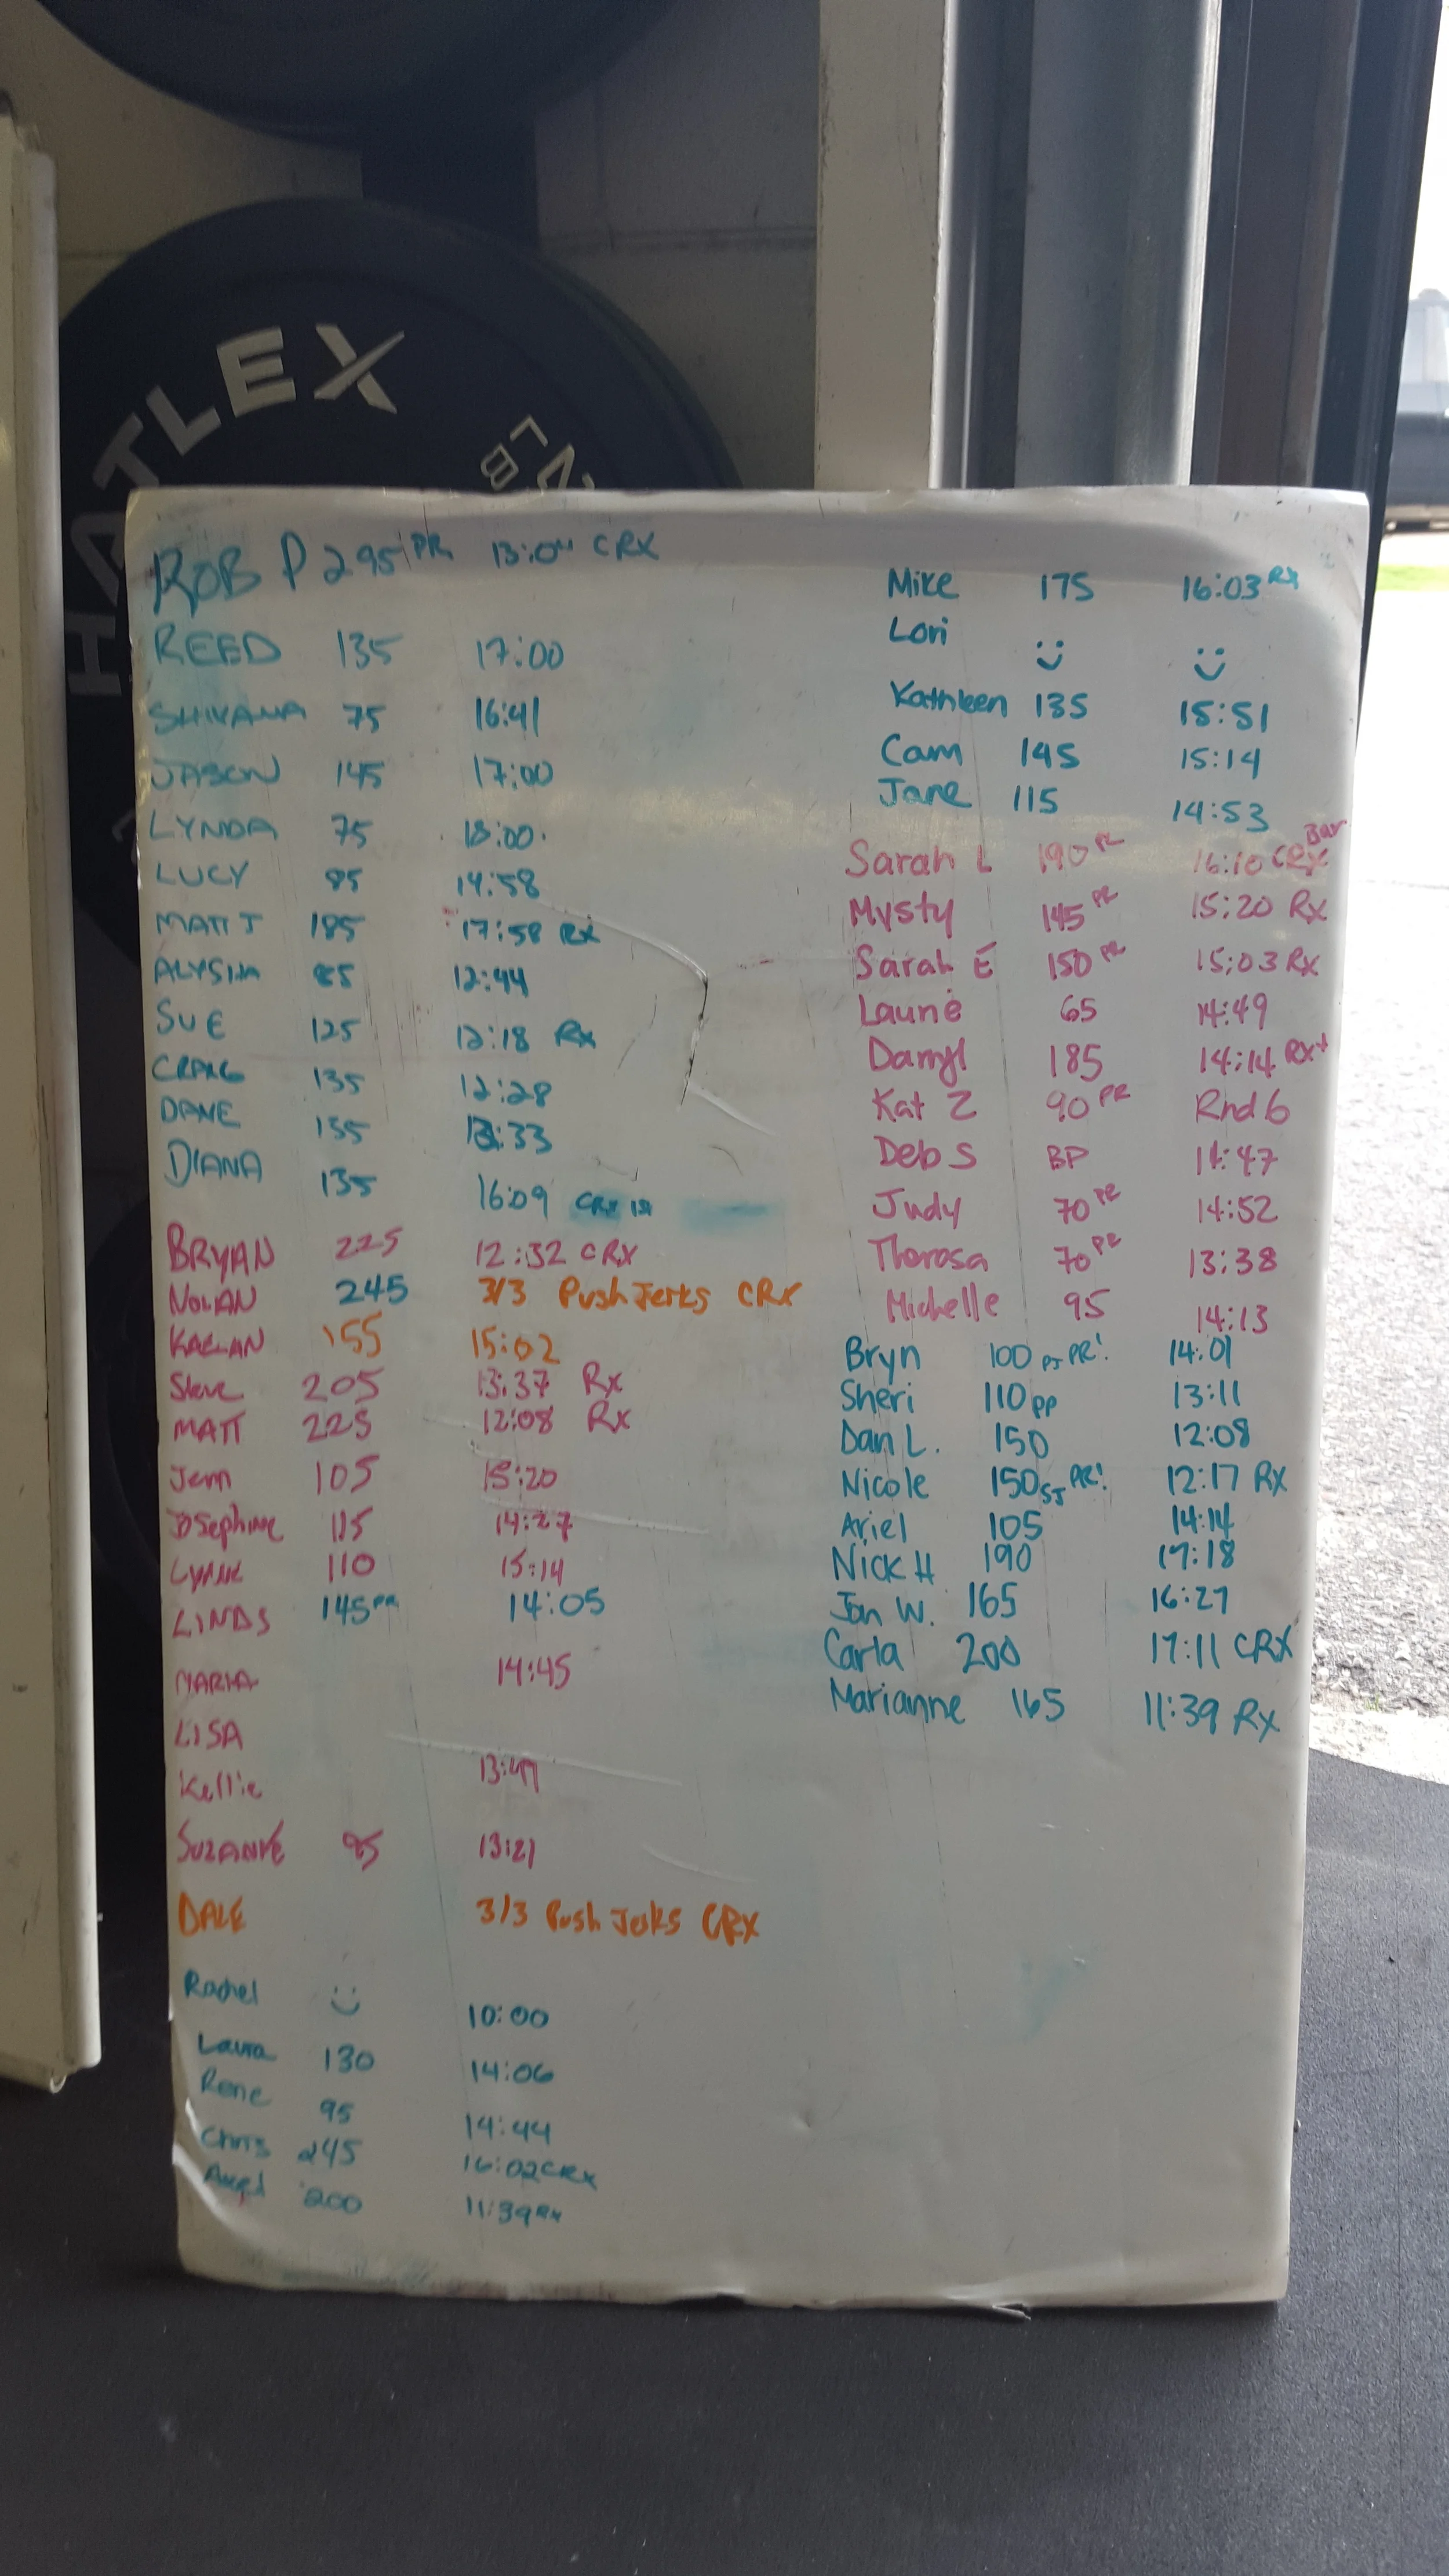 HATLEX
LB
ROB P 295 PR CRX
REED 135 17:00
SHIVANA 75 16:41
JASON 145 17:00
LYNDA 75 18:00
LUCY 85 14:58
MATT J 185 17:58 Rx
ALYSHA 85 12:44
SUE 125 12:18 Rx
CRAIG 135 12:28
DANE 135
DIANA 135 16:09
BRYAN 225 12:32 CRX
NOLAN 245 3/3 Push Jerks CRX
KAELAN 155 15:02
Steve 205 13:37 Rx
MATT 225 12:08 Rx
Jenn 105 15:20
Josephine 115 14:27
LYNNE 110 15:14
LINDS 145 PR 14:05
MARIA 14:45
LISA
Kellie 13:47
SUZANNE 95 13:21
DALE 3/3 Push Jerks CRX
Rachel :) 10:00
Laura 130 14:06
Rene 95 14:44
Chris 245 16:02 CRX
Axel 200 11:39 Rx
Mike 175 16:03 Rx
Lori :) :)
Kathleen 135 15:51
Cam 145 15:14
Jane 115 14:53
Sarah L 190 PR 16:10 CRX Bar
Mysty 145 PR 15:20 Rx
Sarah E 150 PR 15:03 Rx
Laurie 65 14:49
Darryl 185 14:14 RX+
Kat Z 90 PR Rnd 6
Deb S BP 11:47
Judy 70 PR 14:52
Theresa 70 PR 13:38
Michelle 95 14:13
Bryn 100 PJ PR! 14:01
Sheri 110 pp 13:11
Dan L. 150 12:08
Nicole 150 SJ PR! 12:17 Rx
Ariel 105 14:14
Nick H 190 17:18
Jon W. 165 16:27
Carla 200 17:11 CRX
Marianne 165 11:39 Rx